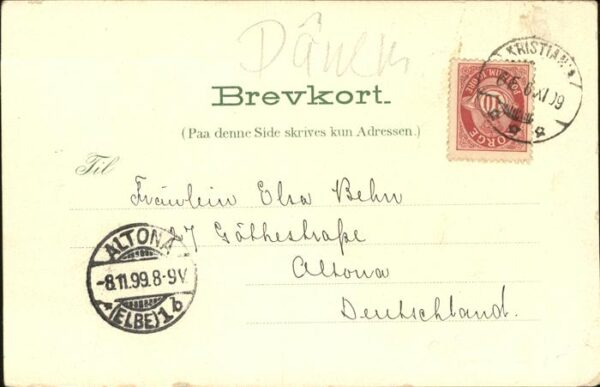 Dänem
Brevkort.
(Paa denne Side skrives kun Adressen.)
Til
Fräulein Elsa Behn
27 Göthestraße
Altona
Deutschland.
KRISTIANIA
6 XI 99
NORGE
10
ALTONA
-8.11.99.8-9V
*(ELBE)1b